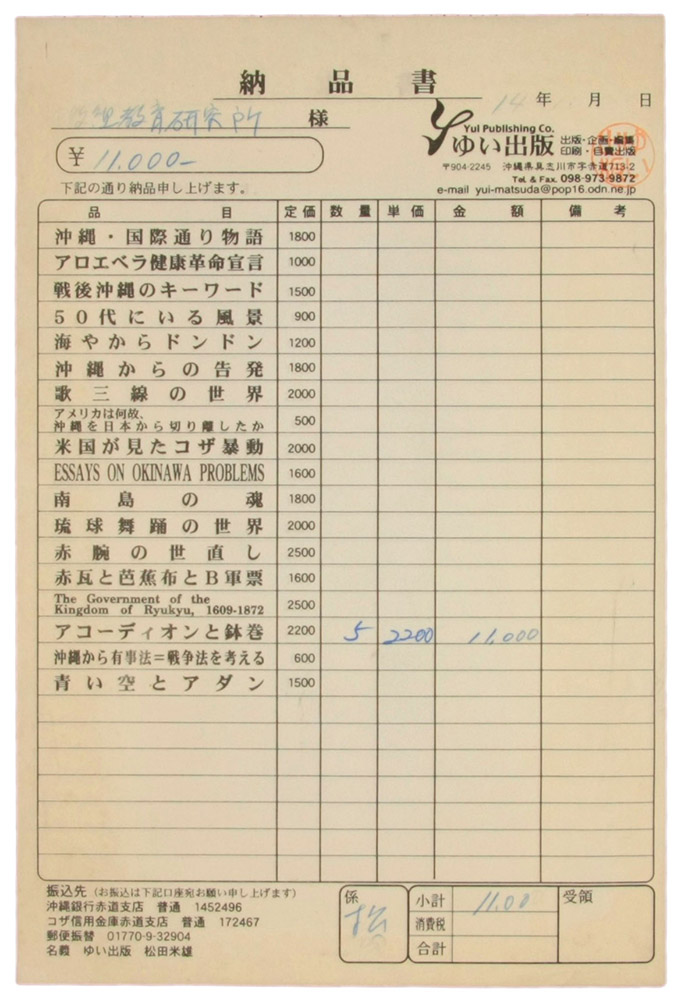 納品書
14年 月 日
教育研究所 様
¥ 11,000-
Yui Publishing Co.
ゆい出版
出版・企画・編集
印刷・自費出版
〒904-2245 沖縄県具志川市字赤道713-2
Tel & Fax. 098-973-9872
e-mail yui-matsuda@pop16.odn.ne.jp
下記の通り納品申し上げます。
品目 定価 数量 単価 金額 備考
沖縄・国際通り物語 1800
アロエベラ健康革命宣言 1000
戦後沖縄のキーワード 1500
50代にいる風景 900
海やからドンドン 1200
沖縄からの告発 1800
歌三線の世界 2000
アメリカは何故、
沖縄を日本から切り離したか 500
米国が見たコザ暴動 2000
ESSAYS ON OKINAWA PROBLEMS 1600
南島の魂 1800
琉球舞踊の世界 2000
赤腕の世直し 2500
赤瓦と芭蕉布とB軍票 1600
The Government of the
Kingdom of Ryukyu, 1609-1872 2500
アコーディオンと鉢巻 2200 5 2200 11,000
沖縄から有事法=戦争法を考える 600
青い空とアダン 1500
振込先 (お振込は下記口座宛お願い申し上げます)
沖縄銀行赤道支店 普通 1452496
コザ信用金庫赤道支店 普通 172467
郵便振替 01770-9-32904
名義 ゆい出版 松田米雄
係 松
小計 11.00
消費税
合計
受領